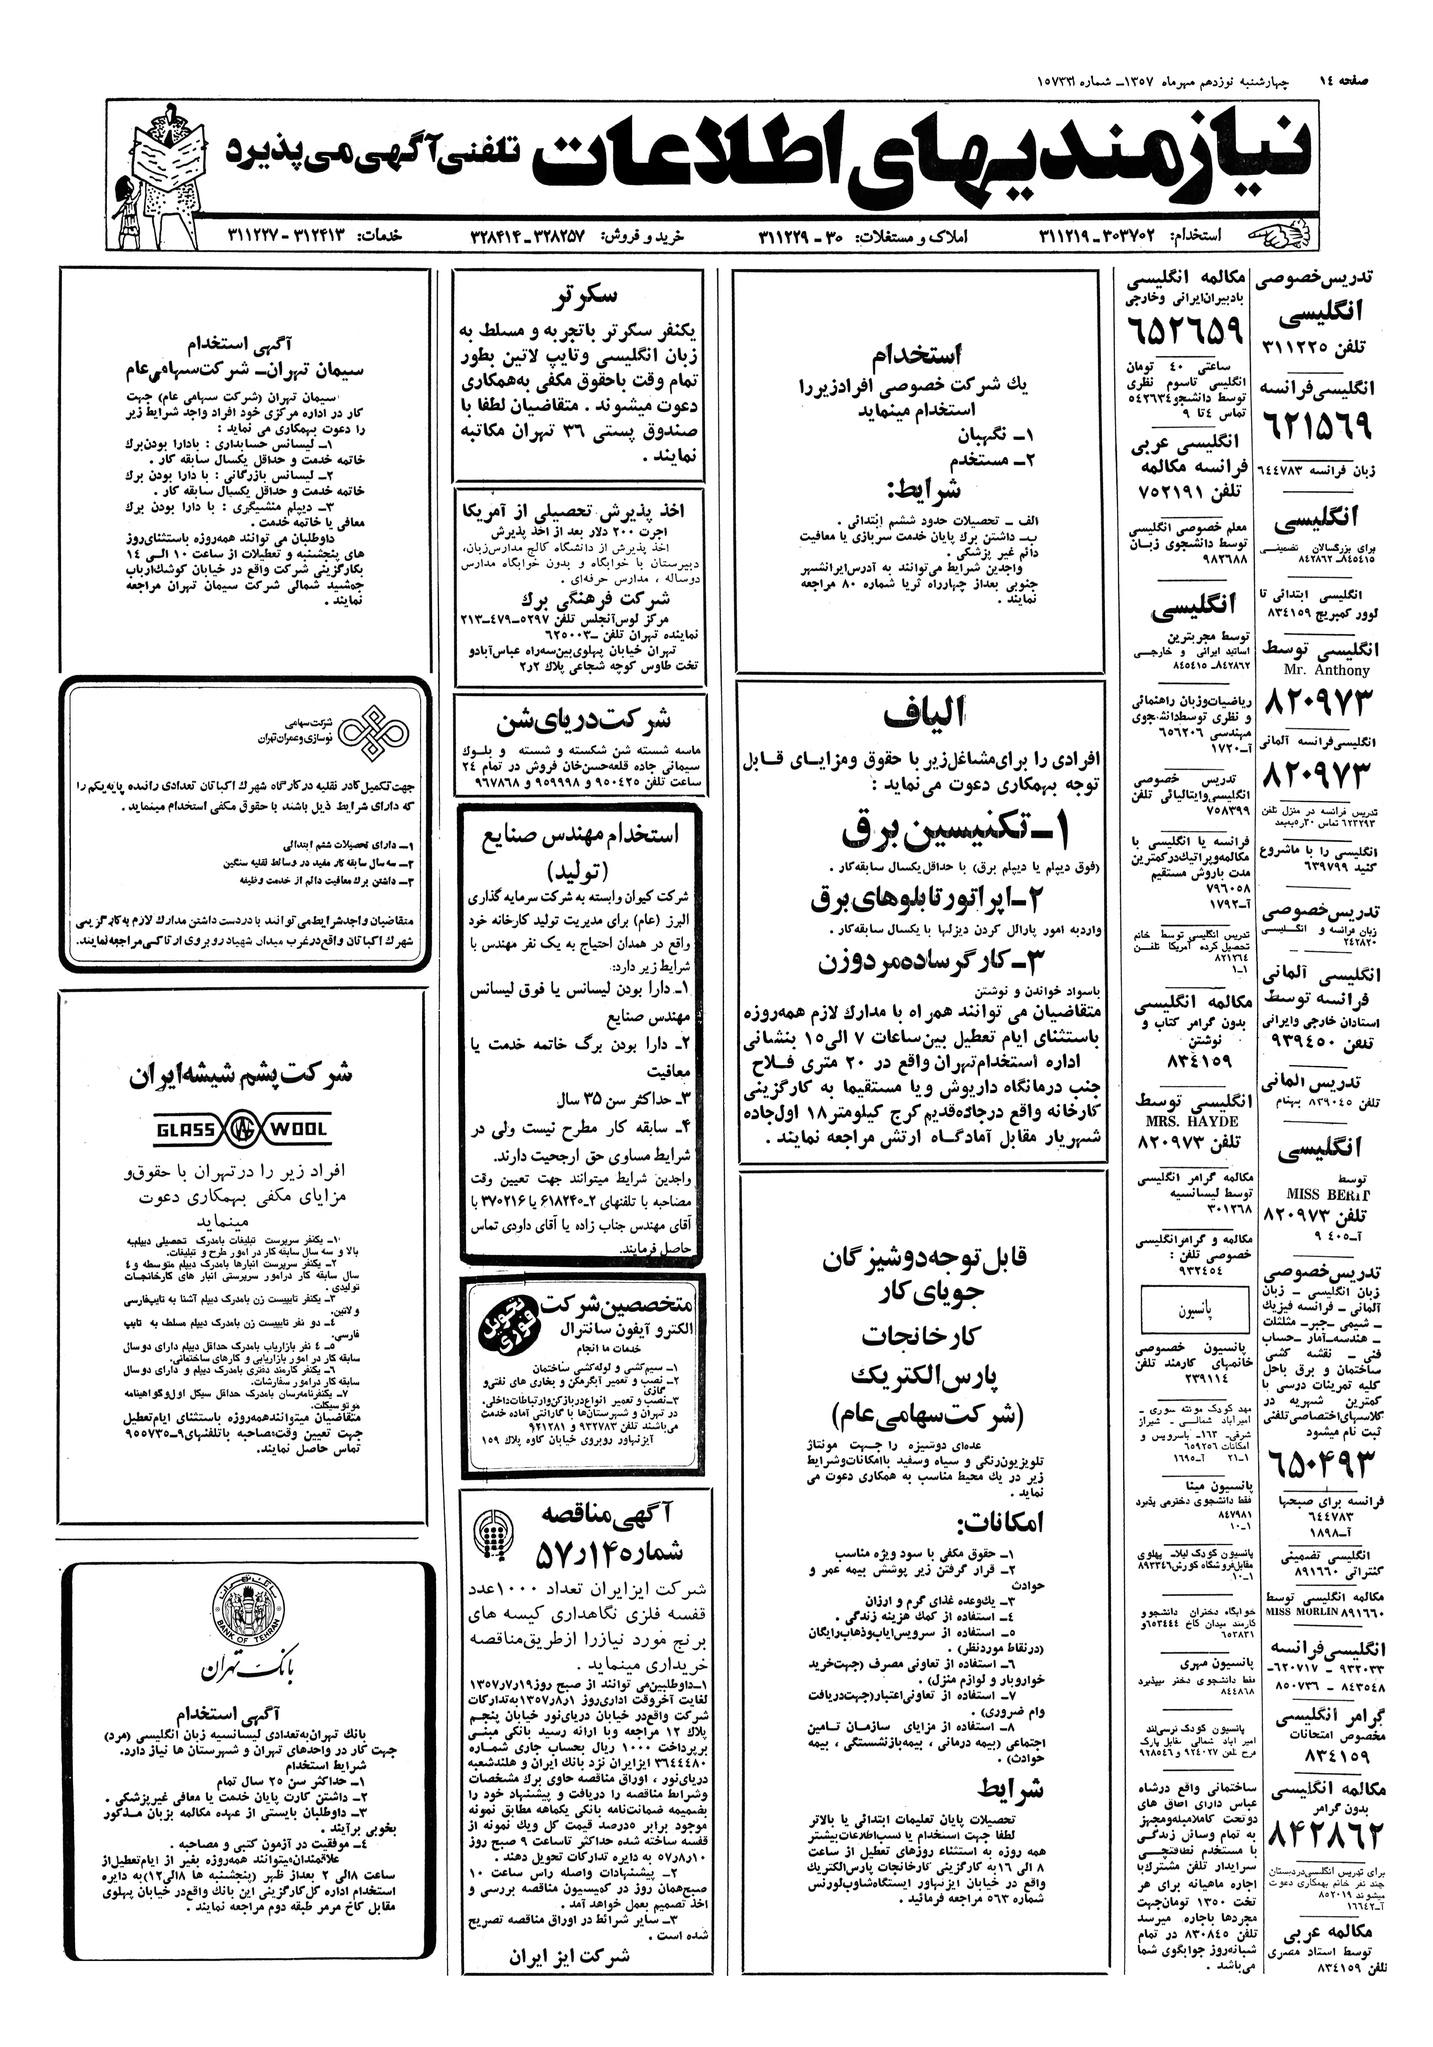 صفحه ۱٤
چهارشنبه نوزدهم مهرماه ۱۳۵۷ــ شماره ۱۵۷۳۳۱
نیازمندیهای اطلاعات تلفنی آگهی می‌پذیرد
استخدام: ۳۰۳۷۰۲-۳۱۱۲۱۹
املاک و مستغلات: ۳۰-۳۱۱۲۲۹
خرید و فروش: ۳۲۸۲۵۷-۳۲۸۴۱۴
خدمات: ۳۱۲۴۱۳-۳۱۱۲۲۷
تدریس خصوصی
انگلیسی
تلفن ۳۱۱۲۲۵
انگلیسی فرانسه
۶۲۱۵۶۹
زبان فرانسه ۶٤٤۷۸۳
انگلیسی
برای بزرگسالان تضمینی
۸٤۵٤۱۵ــ۸٤۲۸۶۲
انگلیسی ابتدائی تا
لوور کمبریج ۸۳٤۱۵۹
انگلیسی توسط
Mr. Anthony
۸۲۰۹۷۳
انگلیسی فرانسه آلمانی
۸۲۰۹۷۳
تدریس فرانسه در منزل تلفن
۶۲۳۲۹۳ تماس ۵ر۳۰ به‌بعد
انگلیسی را با ماشروع
کنید ۶۳۹۷۹۹
تدریس خصوصی
زبان فرانسه و انگلیسی
۲٤۲۸۲۰
انگلیسی آلمانی
فرانسه توسط
استادان خارجی وایرانی
تلفن ۹۳۹٤۵۰
تدریس آلمانی
تلفن ۸۳۹۰٤۵ بهنام
انگلیسی
توسط
MISS BERIT
تلفن ۸۲۰۹۷۳
آــ۹٤۰۵
تدریس خصوصی
زبان انگلیسی ــ زبان
آلمانی ــ فرانسه فیزیک
ــ شیمی ــجبرــ مثلثات
ــ هندسه‌آمارــ حساب
فنی ــ نقشه کشی
ساختمان و برق باحل
کلیه تمرینات درسی با
کمترین شهریه در
کلاسهای‌اختصاصی‌تلفنی
ثبت نام میشود
۶۵۰۴۹۳
فرانسه برای صبحها
۶٤٤۷۸۳
آــ۱۸۹۸
انگلیسی تضمینی
کنتراتی ۸۹۱۶۶۰
مکالمه انگلیسی توسط
MISS MORLIN ۸۹۱۶۶۰
انگلیسی فرانسه
۹۳۲۰۳۳ - ۶۲۰۷۱۷-
۸٤۳۵٤۸ - ۸۵۰۷۳۶
گرامر انگلیسی
مخصوص امتحانات
۸۳٤۱۵۹
مکالمه انگلیسی
بدون گرامر
۸۴۲۸۶۲
برای تدریس انگلیسی‌دردبستان
چند نفر خانم بهمکاری دعوت
میشوند ۸۵۲۰۱۹
آــ۱۶۶٤۲
مکالمه عربی
توسط استاد مصری
تلفن ۸۳٤۱۵۹
مکالمه انگلیسی
بادبیران‌ایرانی وخارجی
۶۵۲۶۵۹
ساعتی ٤۰ تومان
انگلیسی تاسوم نظری
توسط دانشجو۵٤۲۶۳٤
تماس ٤تا ۹
انگلیسی عربی
فرانسه مکالمه
تلفن ۷۵۲۱۹۱
معلم خصوصی انگلیسی
توسط دانشجوی زبان
۹۸۳۶۸۸
انگلیسی
توسط مجربترین
اساتید ایرانی و خارجی
۸٤۲۸۶۲ــ ۸٤۵٤۱۵
ریاضیات‌وزبان راهنمائی
و نظری توسط‌دانشجوی
مهندسی ۶۵۶۲۰۶
آــ۱۷۲۰
تدریس خصوصی
انگلیسی‌وایتالیائی تلفن
۷۵۸۳۹۹
فرانسه یا انگلیسی با
مکالمه‌وپراتیک‌درکمترین
مدت باروش مستقیم
۷۹۶۰۵۸
آــ۱۷۹۲
تدریس انگلیسی توسط خانم
تحصیل کرده آمریکا تلفــن
۸۲۱۲۶٤
۱ــ۱
مکالمه انگلیسی
بدون گرامر کتاب و
نوشتن
۸۳٤۱۵۹
انگلیسی توسط
MRS. HAYDE
تلفن ۸۲۰۹۷۳
مکالمه گرامر انگلیسی
توسط لیسانسیه
۳۰۱۲۶۸
مکالمه و گرامرانگلیسی
خصوصی تلفن :
۹۳۲٤۵٤
پانسیون
پانسیون خصوصی
خانمهای کارمند تلفن
۲۳۹۱۱٤
مهد کودک مونته سوری ــ
امیرآباد شمالــی ــ شیراز
شرقی- ۱۶۳ــ باسرویس و
امکانات ۶۵۹۲۵۶
۲۱ــ۱ آــ۱۶۹۵
پانسیون مینا
فقط دانشجوی دخترمی پذیرد
۸٤۷۹۸۱
۱۰ــ۱
پانسیون کودک لیلاــ پهلوی
مقابل‌فروشگاه کورش۸۹۳۳٤۶
۱۰ــ۱
خوابگاه دختران دانشجوو
کارمند میدان کاخ ۶۵۳٤٤٤و
۶۵۳۸۳۱
پانسیون مهری
فقط دانشجوی دختر میپذیرد
۸٤٤۸۶۸
پانسیون کودک نرسی‌لند
امیر آباد شمالی مقابل پارک
فرح تلفن ۹۲٤۰۲۷ و ۹۲۸۵٤۶
ساختمانی واقع درشاه
عباس دارای اطاق های
دوتخت کاملامبله‌ومجهز
به تمام وسائل زندگــی
با مستخدم نظافتچــی
سرایدار تلفن مشترک‌با
اجاره ماهیانه برای هر
تخت ۱۳۵۰ تومان‌جهت
مجردها باجاره میرسد
تلفن ۸۳۰۸٤۵ در تمام
شبانه‌روز جوابگوی شما
می‌باشد .
استخدام
یك شرکت خصوصی افرادزیررا
استخدام مینماید
۱ــ نگهبان
۲ــ مستخدم
شرایط:
الف ــ تحصیلات حدود ششم ابتدائی .
ب‌ــ داشتن برك پایان خدمت سربازی یا معافیت
دائم غیر پزشکی .
واجدین شرایط می‌توانند به آدرس‌ایرانشهر
جنوبی بعداز چهارراه ثریا شماره ۸۰ مراجعه
نمایند .
الیاف
افرادی را برای‌مشاغل‌زیر با حقوق ومزایــای قــابل
توجه بهمکاری دعوت می‌نماید :
۱ــ تکنیسین برق
(فوق دیپلم یا دیپلم برق) با حداقل یکسال سابقه‌کار .
۲ــ اپراتور تابلوهای برق
واردبه امور پارالل کردن دیزلها با یکسال سابقه‌کار .
۳ــ کارگر ساده مرد وزن
باسواد خواندن و نوشتن
متقاضیان می توانند همراه با مدارك لازم همه‌روزه
باستثنای ایام تعطیل بین‌ساعات ۷ الی۱۵ بنشانی
اداره استخدام‌تهران واقع در ۲۰ متری فــلاح
جنب درمانگاه داریوش ویا مستقیما به کارگزینی
کارخانه واقع درجاده‌قدیم کرج کیلومتر۱۸ اول‌جاده
شهریار مقابل آمادگــاه ارتش مراجعه نمایند .
قابل توجه دوشیزگان
جویای کار
کارخانجات
پارس الکتریك
(شرکت سهامی عام)
عده‌ای دوشیزه را جــهت مونتاژ
تلویزیون‌رنگی و سیاه وسفید باامکانات‌وشرایط
زیر در یك محیط مناسب به همکاری دعوت می
نماید .
امکانات:
۱ــ حقوق مکفی با سود ویژه مناسب
۲ــ قرار گرفتن زیر پوشش بیمه عمر و
حوادث
۳ــ یك‌وعده غذای گرم و ارزان
٤ــ استفاده از کمك هزینه زندگی .
۵ــ استفاده از سرویس‌ایاب‌وذهاب‌رایگان
(درنقاط موردنظر) .
۶ــ استفاده از تعاونی مصرف (جهت‌خرید
خواروبار و لوازم منزل) .
۷ــ استفاده از تعاونی‌اعتبار(جهت‌دریافت
وام ضروری) .
۸ــ استفاده از مزایای سازمان تــامین
اجتماعی (بیمه درمانی ، بیمه‌بازنشستگی ، بیمه
حوادث) .
شرایط
تحصیلات پایان تعلیمات ابتدائی یا بالاتر
لطفا جهت استخدام یا کسب‌اطلاعات‌بیشتر
همه روزه به استثناء روزهای تعطیل از ساعت
۸ الی ۱۶ به کارگزینی کارخانجات پارس‌الکتریك
واقع در خیابان ایزنهاور ایستگاه‌شاوب‌لورنس
شماره ۵۶۳ مراجعه فرمائید .
سکرتر
یکنفر سکرتر باتجربه و مسلط به
زبان انگلیسی وتایپ لاتین بطور
تمام وقت باحقوق مکفی به‌همکاری
دعوت میشوند . متقاضیان لطفا با
صندوق پستی ۳۶ تهران مکاتبه
نمایند .
اخذ پذیرش تحصیلی از آمریکا
اجرت ۲۰۰ دلار بعد از اخذ پذیرش
اخذ پذیرش از دانشگاه کالج مدارس‌زبان،
دبیرستان با خوابگاه و بدون خوابگاه مدارس
دوساله ، مدارس حرفه‌ای .
شرکت فرهنگی برك
مرکز لوس‌آنجلس تلفن ۵۲۹۷ــ۴۷۹ــ۲۱۳
نماینده تهران تلفن ــ۶۲۵۰۰۳
تهران خیابان پهلوی‌بین‌سه‌راه عباس‌آبادو
تخت طاوس کوچه شجاعی پلاك ۲ر۲
شرکت دریای شن
ماسه شسته شن شکسته و شسته و بلــوك
سیمانی جاده قلعه‌حسن‌خان فروش در تمام ۲٤
ساعت تلفن ۹۵۰٤۲۵ و ۹۵۹۹۹۸ و ۹۶۷۸۶۸
استخدام مهندس صنایع
(تولید)
شرکت کیوان وابسته به شرکت سرمایه گذاری
البرز (عام) برای مدیریت تولید کارخانه خود
واقع در همدان احتیاج به یک نفر مهندس با
شرایط زیر دارد:
۱ــ دارا بودن لیسانس یا فوق لیسانس
مهندس صنایع
۲ــ دارا بودن برگ خاتمه خدمت یا
معافیت
۳ــ حداکثر سن ۳۵ سال
۴ــ سابقه کار مطرح نیست ولی در
شرایط مساوی حق ارجحیت دارند.
واجدین شرایط میتوانند جهت تعیین وقت
مصاحبه با تلفنهای ۲ــ۶۱۸۲۴۰ یا ۳۷۰۲۱۶ با
آقای مهندس جناب زاده یا آقای داودی تماس
حاصل فرمایند.
متخصصین شرکت
تحویل فوری
الکترو آیفون سانترال
خدمات ما انجام
۱ــ سیم‌کشی و لوله‌کشی ساختمان
۲ــ نصب و تعمیر آبگرمکن و بخاری های نفتی‌و
گازی
۳ــ نصب و تعمیر انواع‌دربازکن‌وارتباطات‌داخلی.
در تهران و شهرستان‌ها با گارانتی آماده خدمت
می‌باشند تلفن ۹۳۲۷۸۳ و ۹۲۱۲۸۱
آیزنهاور روبروی خیابان کاوه پلاك ۱۵۹
آگهی مناقصه
شماره ۱۴ر۵۷
شرکت ایزایران تعداد ۱۰۰۰عدد
قفسه فلزی نگاهداری کیسه های
برنج مورد نیازرا ازطریق‌مناقصه
خریداری مینماید .
۱ــداوطلبین‌می توانند از صبح روز۱۹ر۷ر۱۳۵۷
لغایت آخروقت اداری‌روز ۱ر۸ر۱۳۵۷ به‌تدارکات
شرکت واقع‌در خیابان دریای‌نور خیابان پنجم
پلاك ۱۲ مراجعه وبا ارائه رسید بانکی مبنــی
برپرداخت ۱۰۰۰ ریال بحساب جاری شماره
۳۶٤٤٤۸۰ ایزایران نزد بانك ایران و هلندشعبه
دریای‌نور ، اوراق مناقصه حاوی برك مشخصات
وشرایط مناقصه را دریافت و پیشنهاد خود را
بضمیمه ضمانت‌نامه بانکی یکماهه مطابق نمونه
موجود برابر ۵درصد قیمت کل ویك نمونه از
قفسه ساخته شده حداکثر تاساعت ۹ صبح روز
۱۰ر۸ر۵۷ به دایره تدارکات تحویل دهند .
۲ــ پیشنهادات واصله راس ساعت ۱۰
صبح‌همان روز در کمیسیون مناقصه بررسی و
اخذ تصمیم بعمل خواهد آمد .
۳ــ سایر شرائط در اوراق مناقصه تصریح
شده است .
شرکت ایز ایران
آگهی استخدام
سیمان تهران‌ــ شرکت‌سهامی‌عام
سیمان تهران (شرکت سهامی عام) جهت
کار در اداره مرکزی خود افراد واجد شرایط زیر
را دعوت بهمکاری می نماید :
۱ــ لیسانس حسابداری : بادارا بودن‌برك
خاتمه خدمت و حداقل یکسال سابقه کار .
۲ــ لیسانس بازرگانی : با دارا بودن برك
خاتمه خدمت و حداقل یکسال سابقه کار .
۳ــ دیپلم منشیگری : با دارا بودن برك
معافی یا خاتمه خدمت .
داوطلبان می توانند همه‌روزه باستثنای‌روز
های پنجشنبه و تعطیلات از ساعت ۱۰ الــی ۱٤
بکارگزینی شرکت واقع در خیابان کوشك‌ارباب
جمشید شمالی شرکت سیمان تهران مراجعه
نمایند .
شرکت سهامی
نوسازی و عمران تهران
جهت تکمیل کادر نقلیه در کارگاه شهرك اکباتان تعدادی راننده پایه یکم را
که دارای شرایط ذیل باشند با حقوق مکفی استخدام مینماید .
۱ــ دارای تحصیلات ششم ابتدائی
۲ــ سه سال سابقه کار مفید در وسائط نقلیه سنگین
۳ــ داشتن برك معافیت دائم از خدمت وظیفه
متقاضیان واجد شرایط می توانند با در دست داشتن مدارك لازم به کارگزینی
شهرك اکباتان واقع در غرب میدان شهیاد روبروی ارتاکسی مراجعه نمایند.
شرکت پشم شیشه ایران
GLASS WOOL
افراد زیر را درتهران با حقوق‌و
مزایای مکفی بهمکاری دعوت
مینماید
۱ــ یکنفر سرپرست تبلیغات بامدرك تحصیلی دیپلم‌به
بالا و سه سال سابقه کار در امور طرح و تبلیغات.
۲ــ یکنفر سرپرست انبارها بامدرك دیپلم متوسطه و ٤
سال سابقه کار درامور سرپرستی انبار های کارخانجات
تولیدی .
۳ــ یکنفر تایپیست زن بامدرك دیپلم آشنا به تایپ‌فارسی
و لاتین.
٤ــ دو نفر تایپیست زن بامدرك دیپلم مسلط به تایپ
فارسی.
۵ــ ٤ نفر بازاریاب بامدرك حداقل دیپلم دارای دو سال
سابقه کار در امور بازاریابی و کارهای ساختمانی.
۶ــ یکنفر کارمند دفتری بامدرك دیپلم و دارای دو سال
سابقه کار درامور سفارشات.
۷ــ یکنفرنامه‌رسان بامدرك حداقل سیکل اول‌و‌گواهینامه
موتوسیکلت.
متقاضیان میتوانندهمه‌روزه باستثنای ایام‌تعطیل
جهت تعیین وقت‌مصاحبه باتلفنهای۹ــ۹۵۵۷۳۵
تماس حاصل نمایند.
BANK OF TEHRAN
بانک تهران
آگهی استخدام
بانك تهران‌به‌تعدادی لیسانسیه زبان انگلیسی (مرد)
جهت کار در واحدهای تهران و شهرستان ها نیاز دارد.
شرایط استخدام
۱ــ حداکثر سن ۲۵ سال تمام
۲ــ داشتن کارت پایان خدمت یا معافی غیرپزشکی .
۳ــ داوطلبان بایستی از عهده مکالمه بزبان مــذکور
بخوبی برآیند .
٤ــ موفقیت در آزمون کتبی و مصاحبه .
علاقمندان‌میتوانند همه‌روزه بغیر از ایام‌تعطیل‌از
ساعت ۸الی ۲ بعداز ظهر (پنجشنبه ها ۸الی۱۲)به دایره
استخدام اداره کل‌کارگزینی این بانك واقع‌درخیابان پهلوی
مقابل کاخ مرمر طبقه دوم مراجعه نمایند .